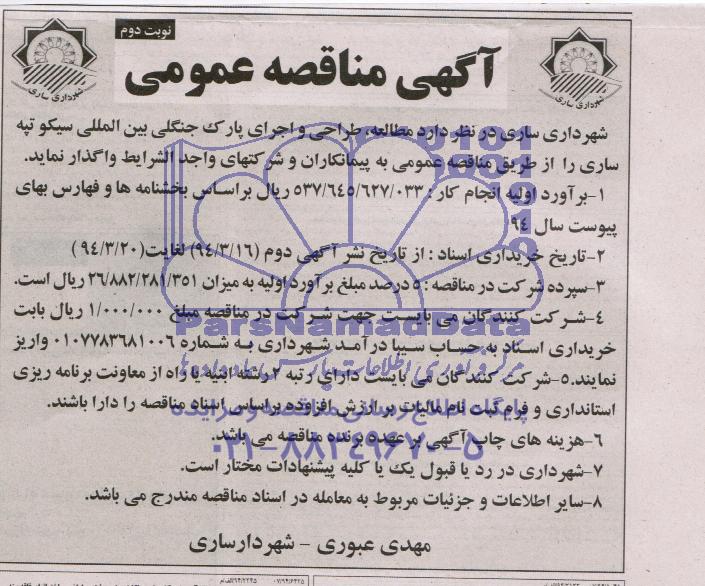 نوبت دوم
آگهی مناقصه عمومی
شهرداری ساری
شهرداری ساری
شهرداری ساری در نظر دارد مطالعه، طراحی و اجرای پارک جنگلی بین المللی سیکو تپه
ساری را از طریق مناقصه عمومی به پیمانکاران و شرکتهای واجد الشرایط واگذار نماید.
۱-برآورد اولیه انجام کار : ۵۳۷/۶۴۵/۶۲۷/۰۳۳ ریال براساس بخشنامه ها و فهارس بهای
پیوست سال ۹۴
۲-تاریخ خریداری اسناد : از تاریخ نشر آگهی دوم (۹۴/۳/۱۶) لغایت(۹۴/۳/۲۰)
۳-سپرده شرکت در مناقصه : ۵ درصد مبلغ برآورد اولیه به میزان ۲۶/۸۸۲/۲۸۱/۳۵۱ ریال است.
۴-شرکت کنندگان می بایست جهت شرکت در مناقصه مبلغ ۱/۰۰۰/۰۰۰ ریال بابت
خریداری اسناد به حساب سیبا درآمد شهرداری به شماره ۰۱۰۷۷۸۳۶۸۱۰۰۶ واریز
نمایند.۵-شرکت کنندگان می بایست دارای رتبه ۲ رشته ابنیه یا راه از معاونت برنامه ریزی
استانداری و فرم ثبت نام مالیات بر ارزش افزوده براساس اسناد مناقصه را دارا باشند.
۶-هزینه های چاپ آگهی بر عهده برنده مناقصه می باشد.
۷-شهرداری در رد یا قبول یک یا کلیه پیشنهادات مختار است.
۸-سایر اطلاعات و جزئیات مربوط به معامله در اسناد مناقصه مندرج می باشد.
مهدی عبوری - شهردارساری
ParsNamadData
مرکز فرآوری اطلاعات پارس نماد داده ها
پایگاه اطلاع رسانی مناقصه و مزایده
۰۲۱-۸۸۳۴۹۶۷۰-۵